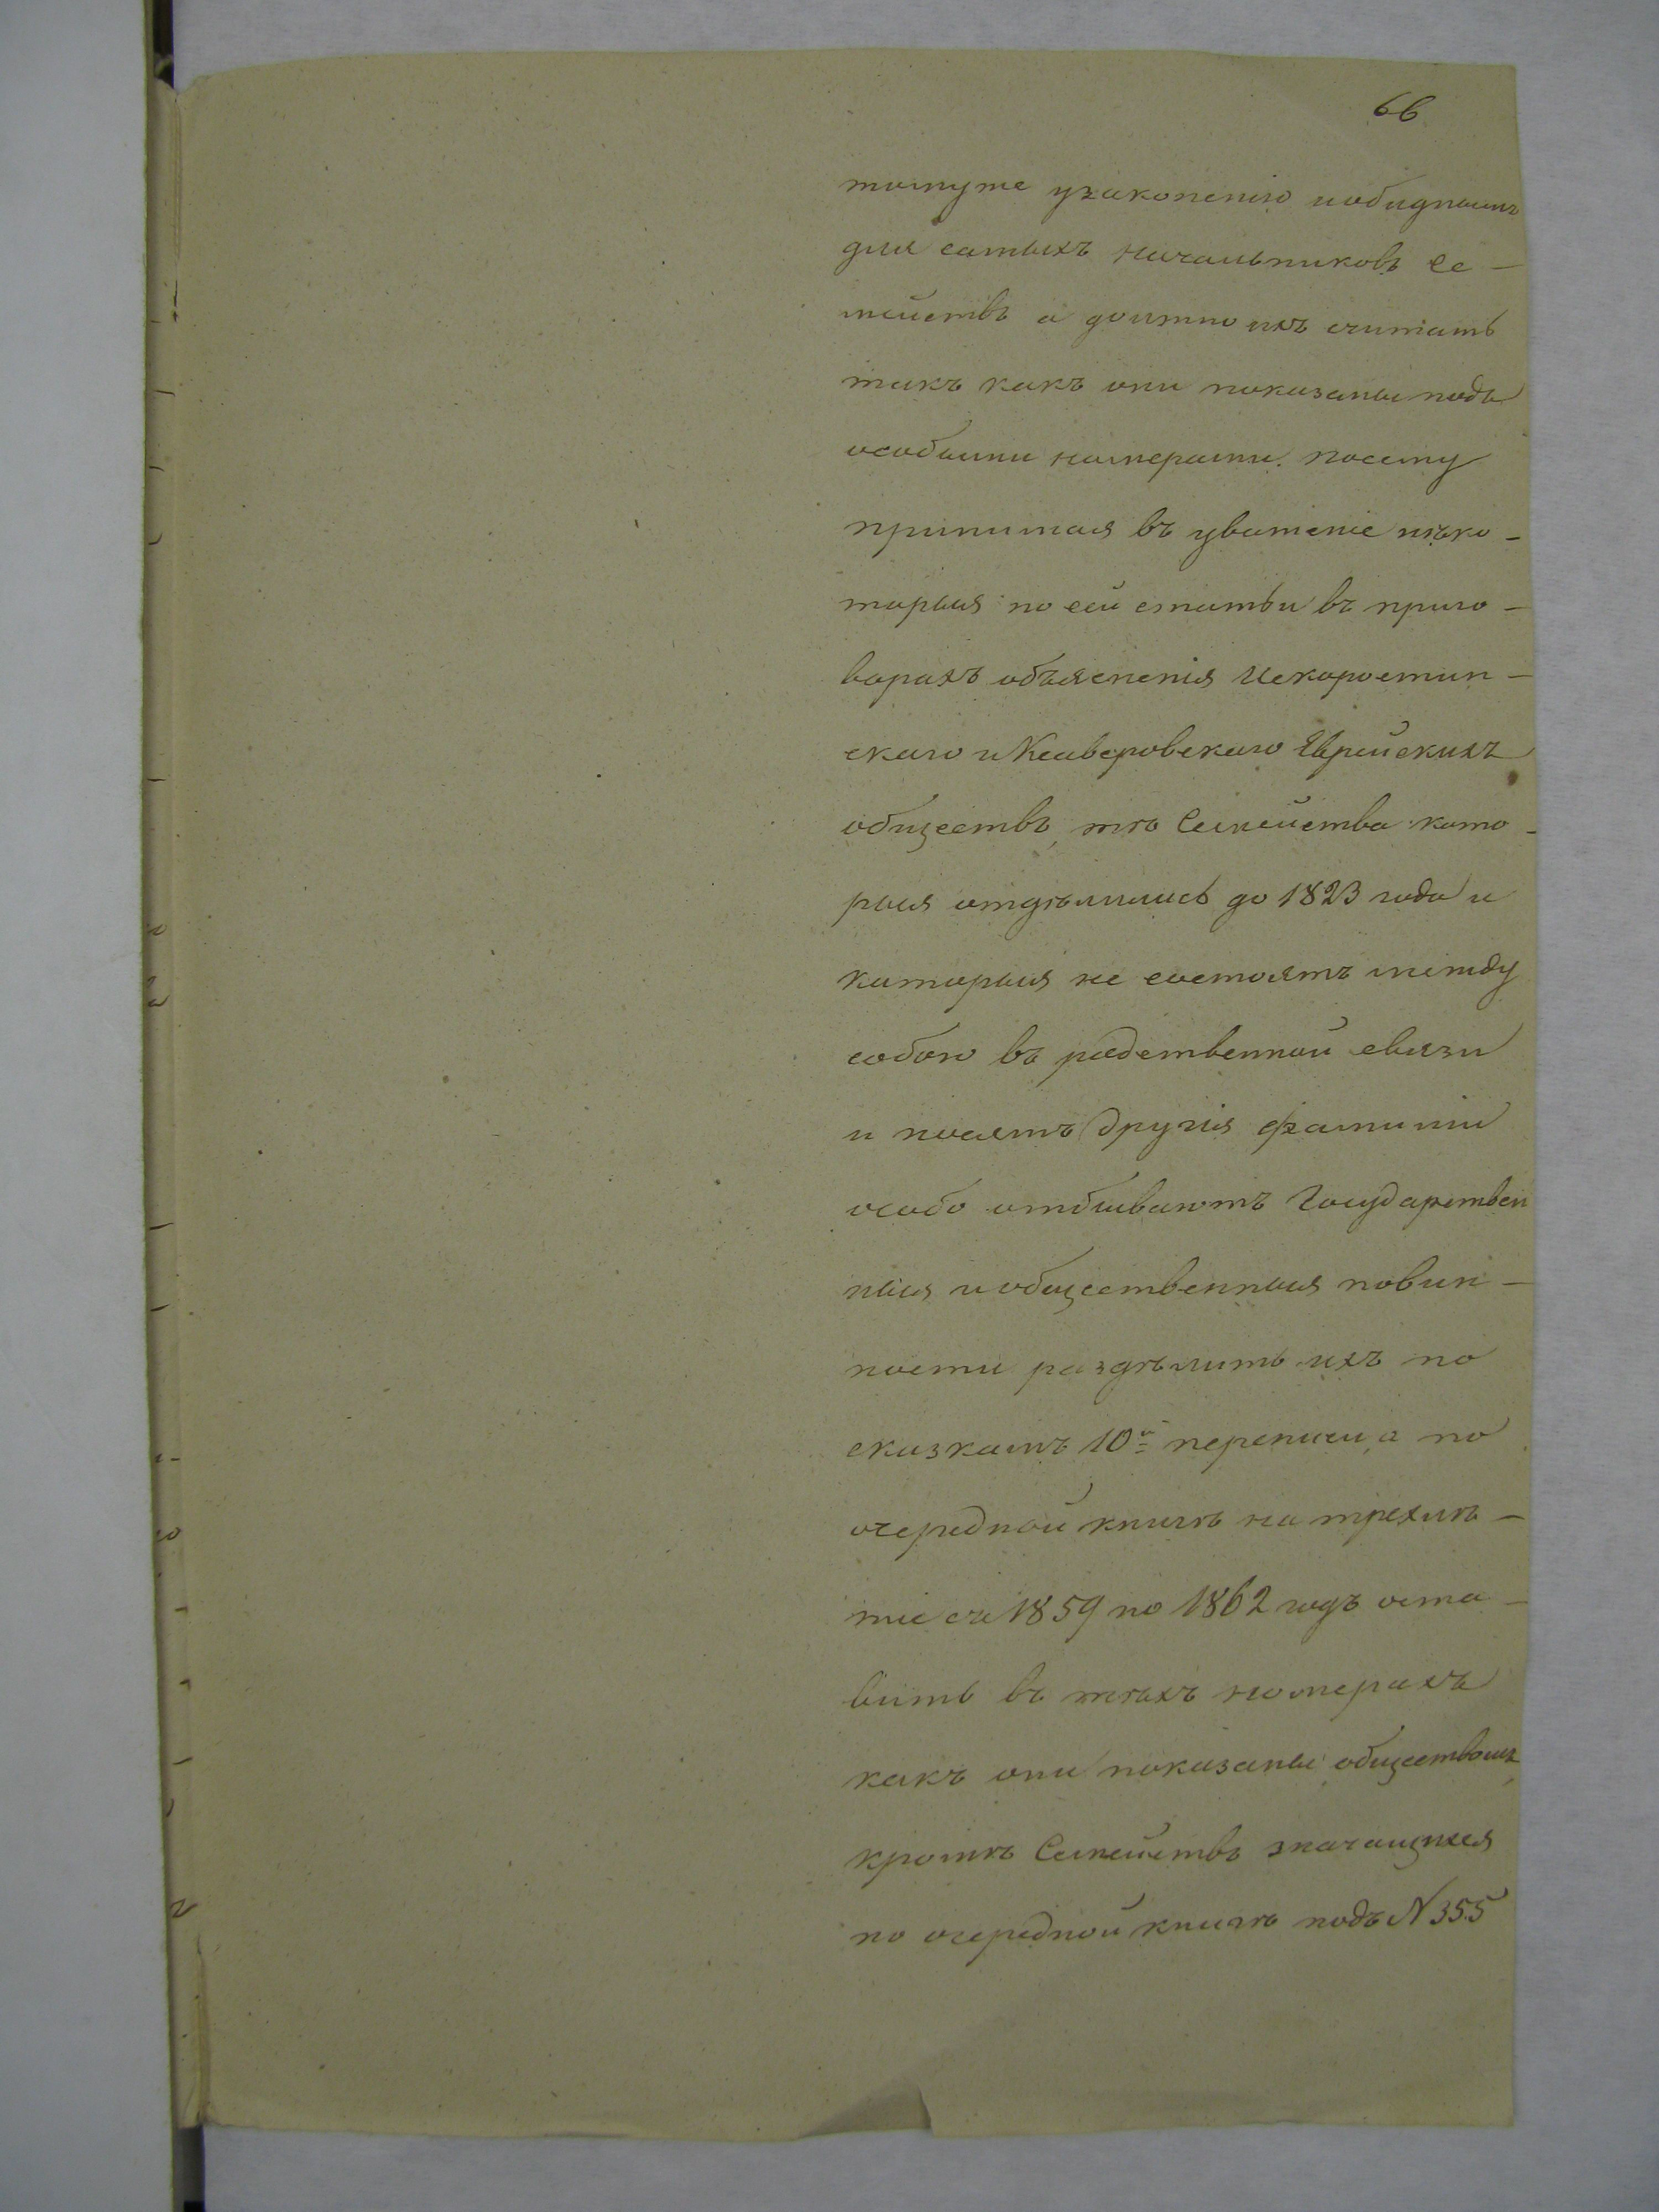 66
томуже узаконенію иобиднымъ
для самыхъ начальниковъ Се-
мействъ а должно ихъ считать
такъ какъ они показаны подъ
особыми номерами. посему
принимая въ уваженіе нѣко-
торыя по сей статьи въ приго-
ворахъ объясненія Искоростин-
скаго и Ксаверовскаго Еврейскихъ
обществъ, тѣ Семейства кото-
рыя отдѣлились до 1823 года и
которыя не состоятъ между
собою въ родственной связи
и носятъ другія фамиліи
особо отбываютъ Государствен
ныя и общественныя повин-
ности раздѣлить ихъ по
сказкамъ 10й переписи, а по
очередной книгѣ на трехлѣ-
тіе съ 1859 по 1862 годъ оста-
вить въ тѣхъ номерахъ
какъ они показаны обществомъ,
кромѣ Семействъ значащихся
по очередной книгѣ подъ N 355